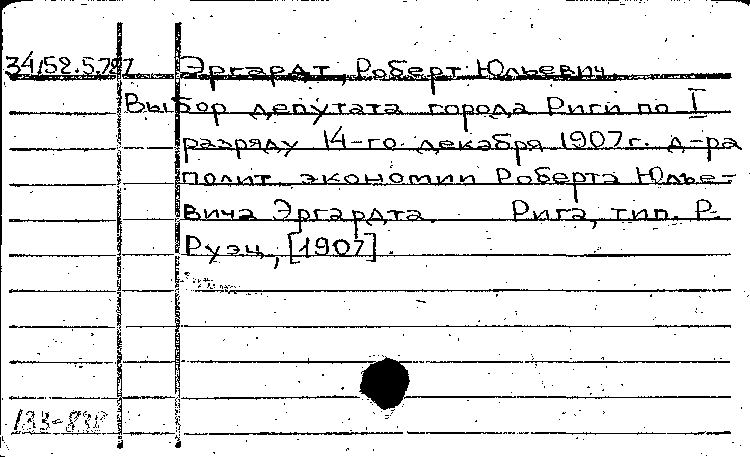 34/52.5.797 Эргардт, Роберт Юльевич
Выбор депутата города Риги по I
разряду 14-го декабря 1907г. д-ра
полит. экономии Роберта Юлье-
вича Эргардта. Рига, тип. Р.
Руэц, [1907].
133-838